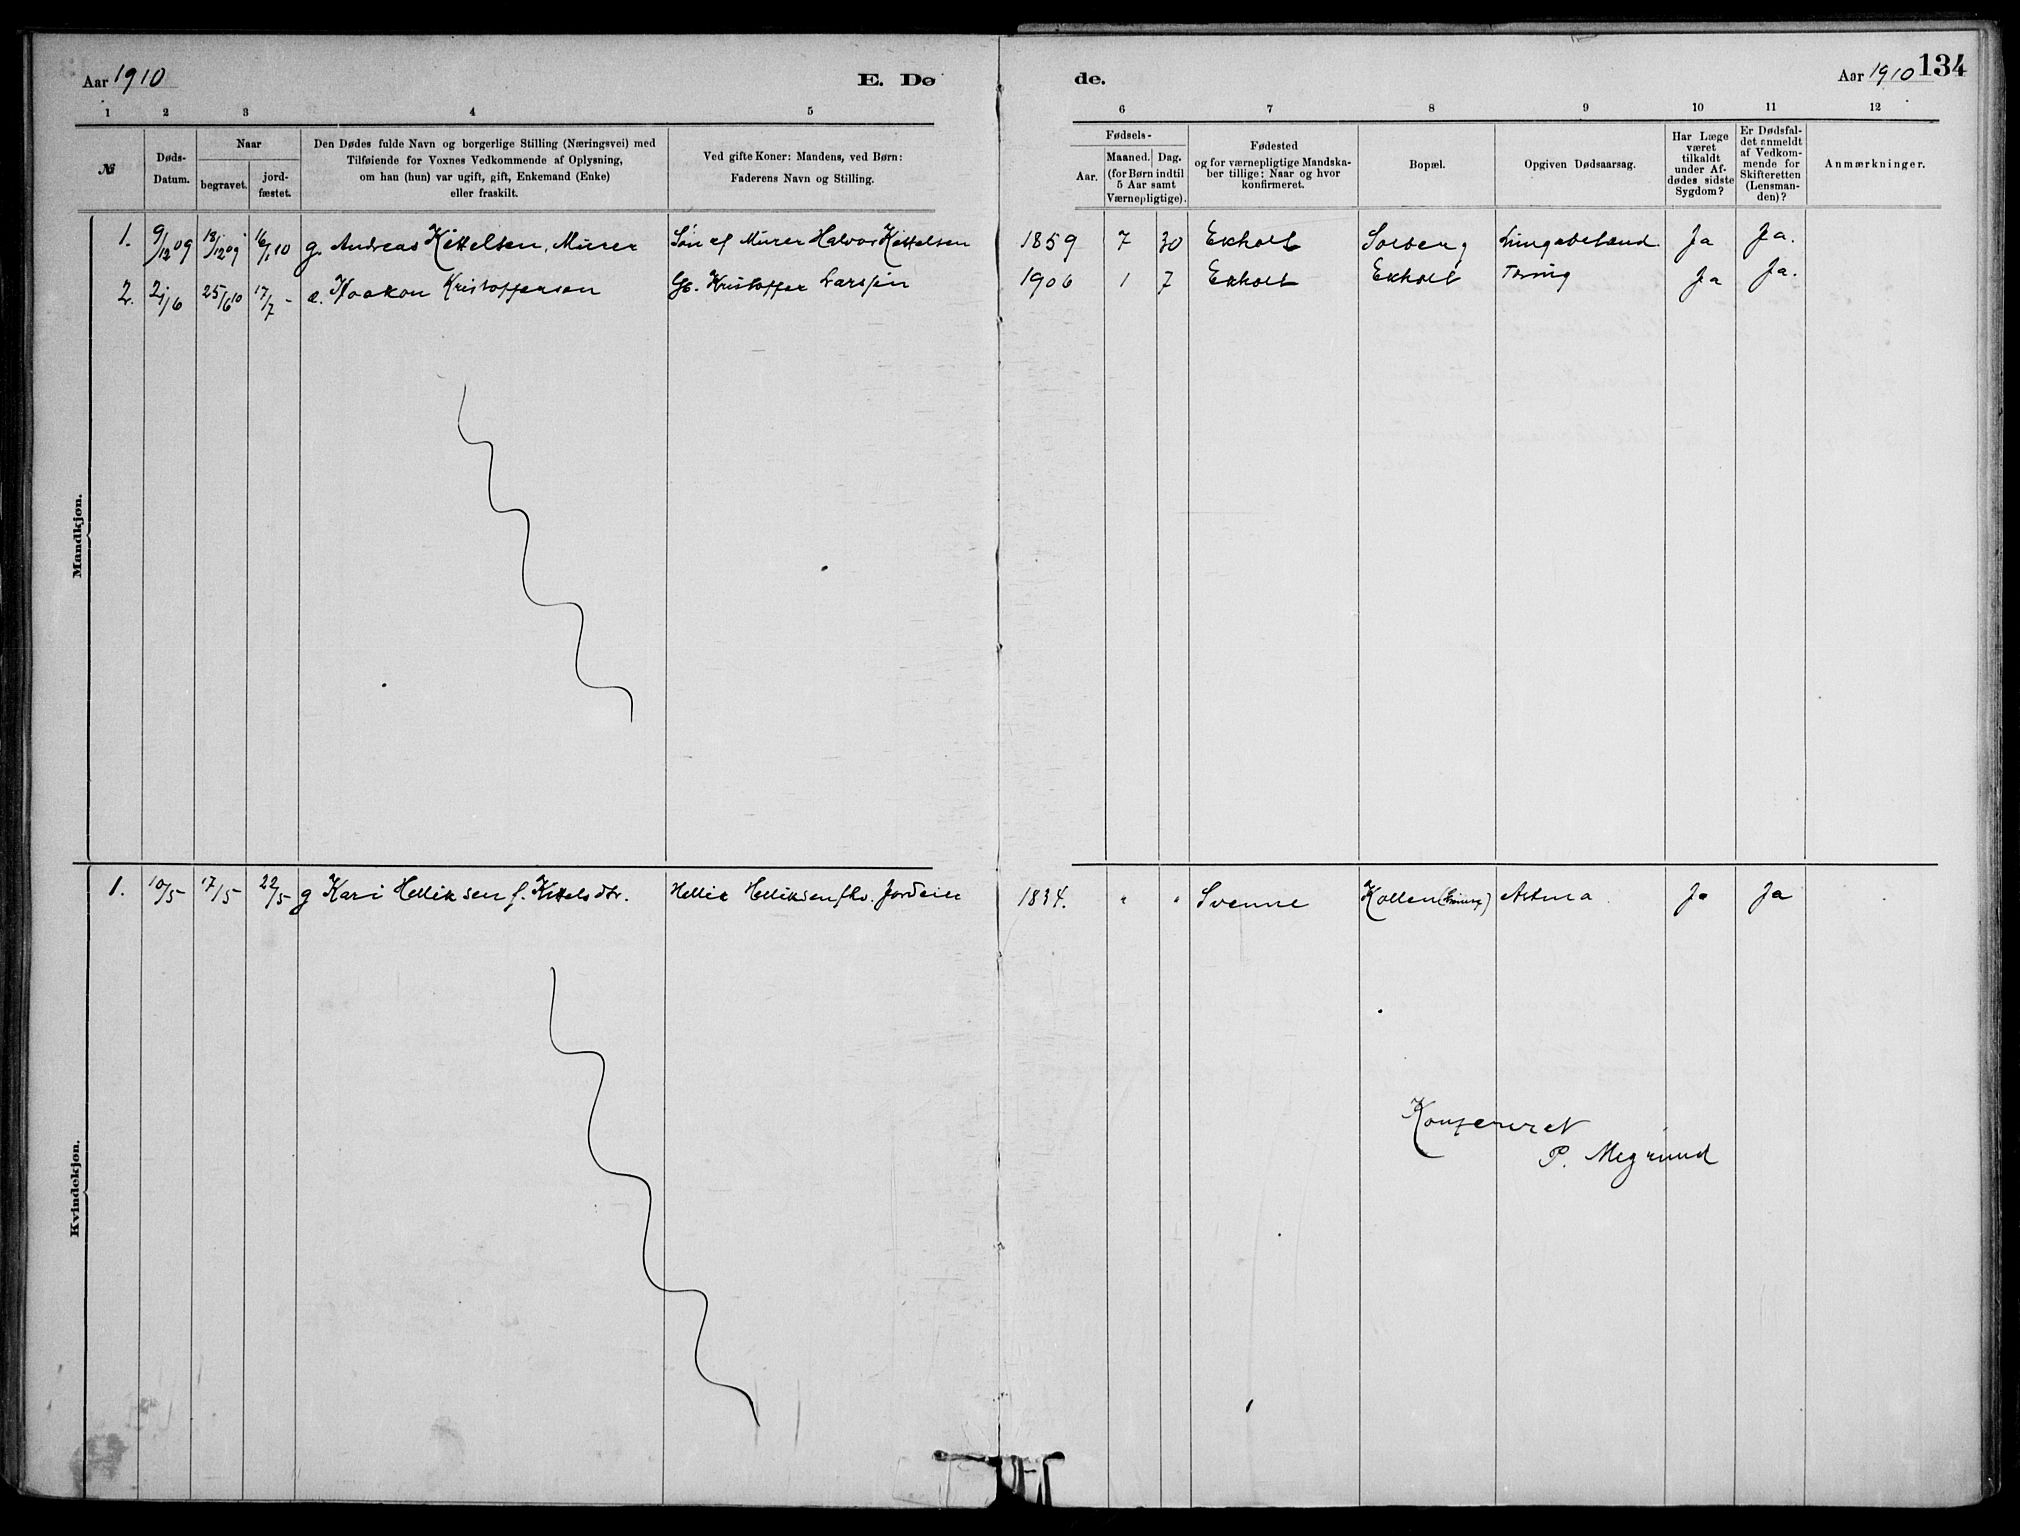 Aar 1910
E. Dø
de.
Aar 1910 134
1 2 3 4 5 6 7 8 9 10 11 12
№
Døds-
Datum.
Naar
begravet.
jord-
fæstet.
Den Dødes fulde Navn og borgerlige Stilling (Næringsvei) med
Tilføiende for Voxnes Vedkommende af Oplysning,
om han (hun) var ugift, gift, Enkemand (Enke)
eller fraskilt.
Ved gifte Koner: Mandens, ved Børn:
Faderens Navn og Stilling.
Fødsels-
Aar.
Maaned. Dag.
(for Børn indtil
5 Aar samt
Værnepligtige).
Fødested
og for værnepligtige Mandska-
ber tillige: Naar og hvor
konfirmeret.
Bopæl.
Opgiven Dødsaarsag.
Har Læge
været
tilkaldt
under Af-
dødes sidste
Sygdom?
Er Dødsfal-
det anmeldt
af Vedkom-
mende for
Skifteretten
(Lensman-
den)?
Anmærkninger.
Mandkjøn.
1. 9/12 09 18/12 09 16/1 10 g. Andreas Kittelsen, Murer Søn af Murer Halvor Kittelsen 1859 7 30 Ekholt Solberg Ja Ja.
2. 21/6 25/6 10 17/7 - Haakon Kristoffersen Kristoffer Larssen 1906 1 7 Ekholt Ekholt Tæring Ja Ja.
Kvindekjøn.
1. 10/5 17/5 22/5 g Kari Helliksen f. Kittelsdtr. Hellik Helliksen fhv. Jordeier 1834. " " Svenne Kollen Astma Ja Ja
Konfereret
P.